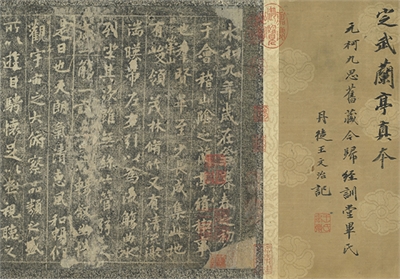 定武蘭亭真本
元柯九思舊藏今歸經訓堂畢氏
丹徒王文治記
永和九年歲在癸丑暮春之初
于會稽山陰之蘭亭脩禊事
也羣賢畢至少長咸集此地
有峻領茂林脩竹又有清流激
湍暎帶左右引以為流觴曲水
列坐其次雖無絲竹管弦之
盛一觴一詠亦足以暢敘幽情
是日也天朗氣清惠風和暢仰
觀宇宙之大俯察品類之盛
所以遊目騁懷足以極視聽之